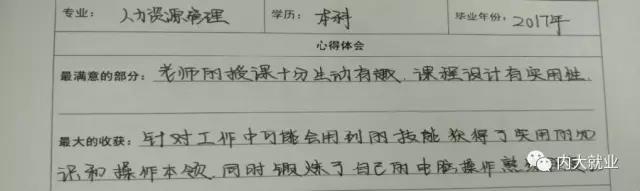 专业: 人力资源管理 学历: 本科 毕业年份: 2017年
心得体会
最满意的部分: 老师的授课十分生动有趣, 课程设计有实用性.
最大的收获: 针对工作中可能会用到的技能获得了实用的知
识和操作本领, 同时锻炼了自己的电脑操作熟练
内大就业